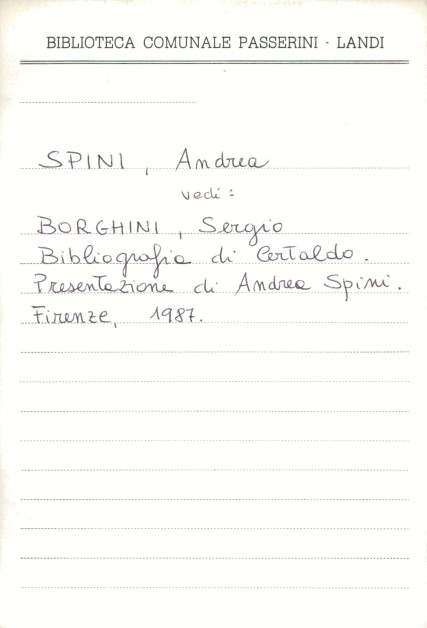 BIBLIOTECA COMUNALE PASSERINI - LANDI
SPINI, Andrea
vedi:
BORGHINI, Sergio
Bibliografia di Certaldo.
Presentazione di Andrea Spini.
Firenze, 1987.